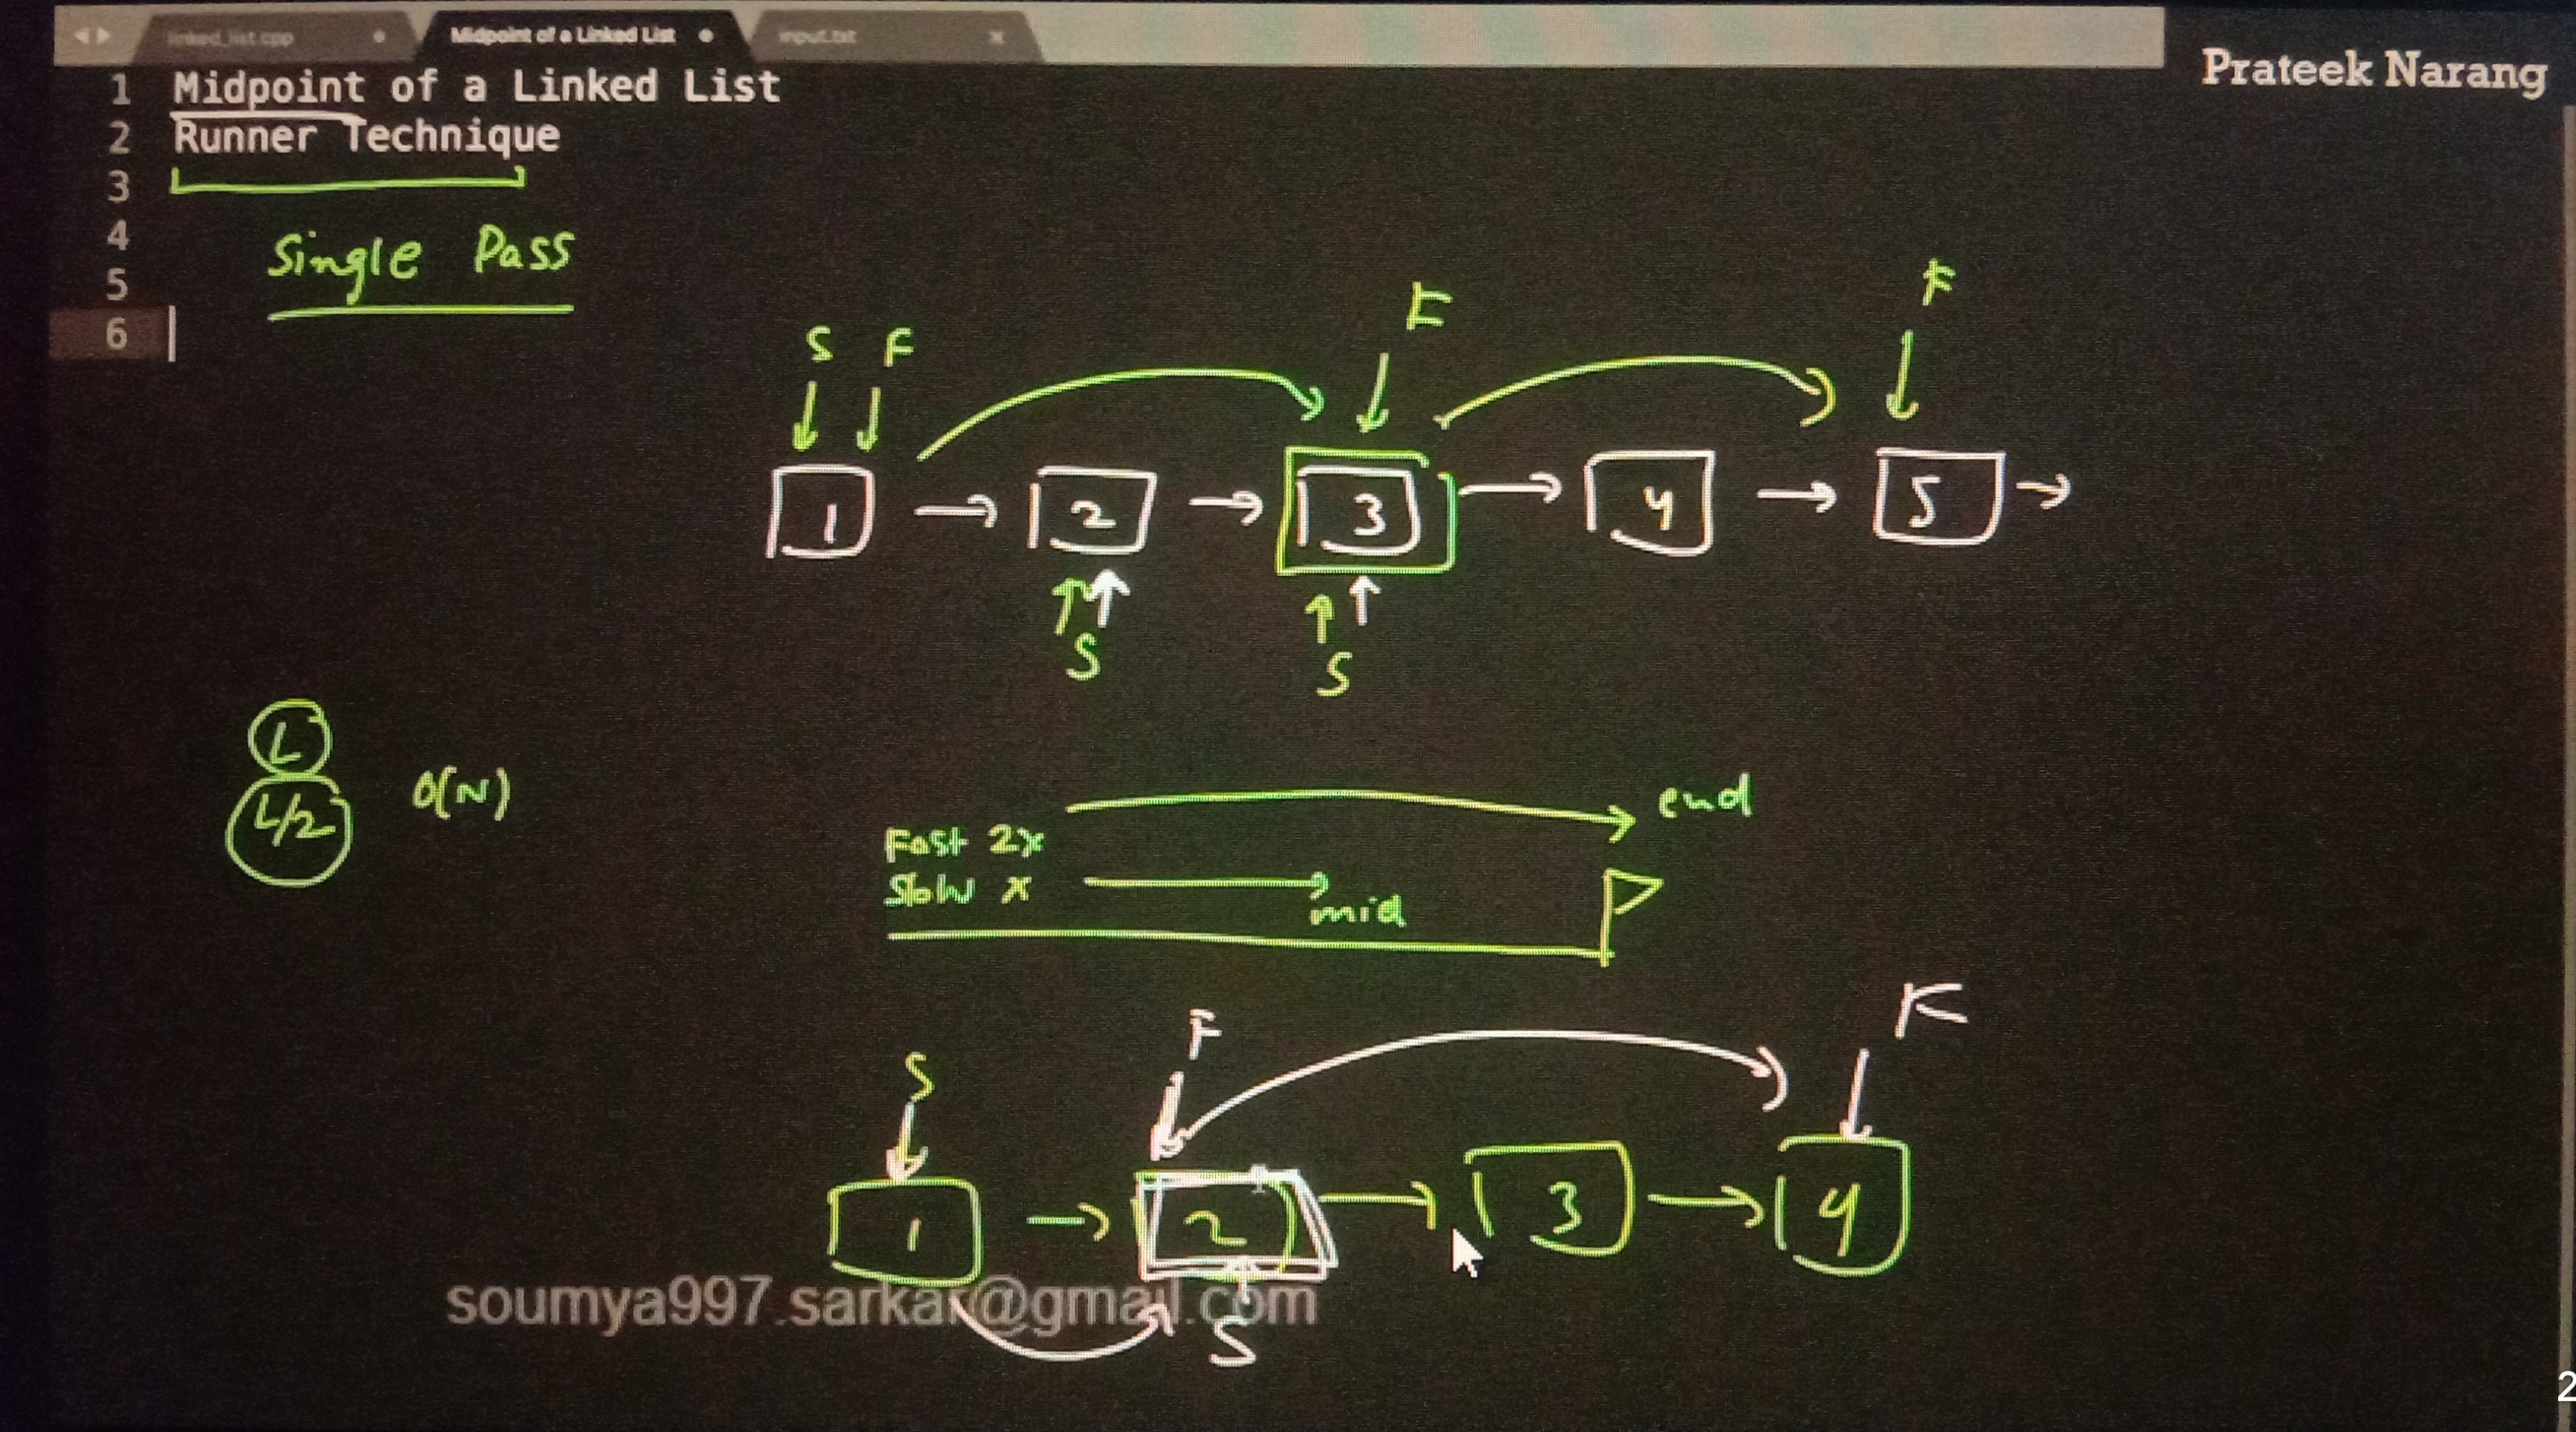 linked_list.cpp
Midpoint of a Linked List
input.txt
Prateek Narang
1 Midpoint of a Linked List
2 Runner Technique
3
4
5
6
Single Pass
F
F
S F
1 2 3 4 5
S
S
L
L/2
O(N)
end
Fast 2x
Slow x
mid
F
F
S
1 2 3 4
soumya997.sarkar@gmail.com
S
2